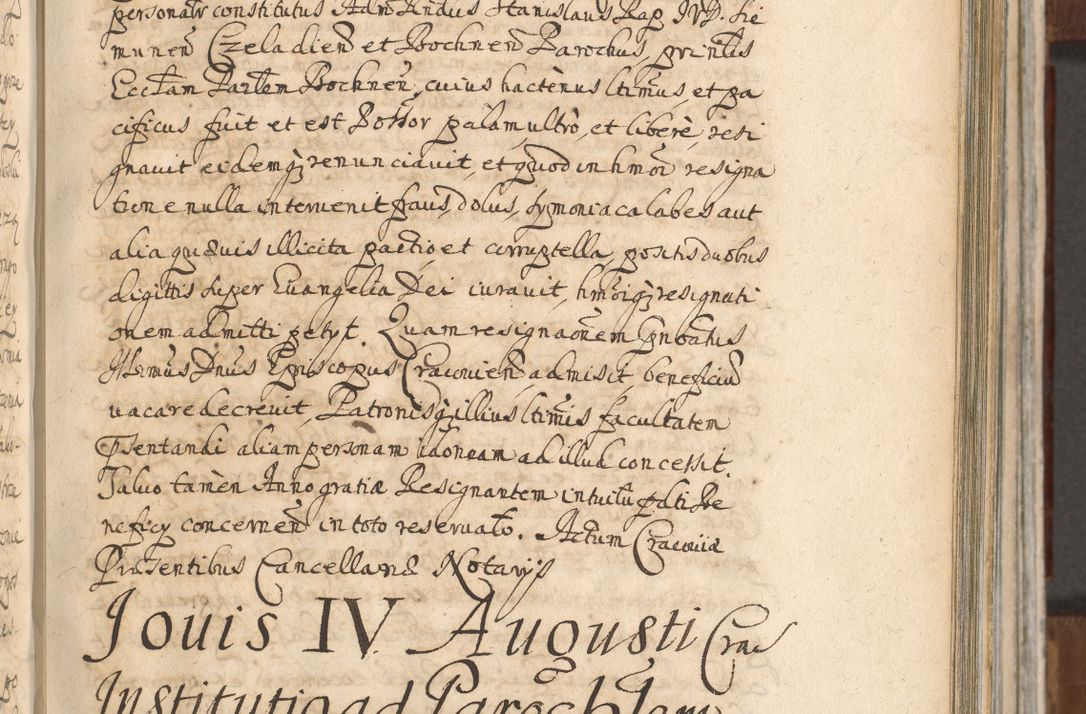 personalr constitutus Adm Rndus Stanislaus Rap IVD. Sie
munen Czeladien et Bochnen Parochus, prinlis
Ecclam Parlem Bochnen, cuius hactenus ltimus, et pa
cificus fuit et est Possor palam ultrò, et liberè, resi
gnauit eidemq renunciauit, et quod in hmoi resigna
tione nulla interuenit fraus, dolus, symoniaca labes aut
alia quæuis illicita pactio et corruptella, positis duobus
digittis super Euangelia Dei iurauit, hmoiq resignati
onem admitti petyt. Quam resignaonem
Illrmus Dnus Episcopus Cracouien admisit, beneficiu
uacare decreuit, Patronisq illius ltimis facultatem
Psentandi aliam personam idoneam ad illud concessit.
Saluo tamèn Anno gratiæ Resignantem intuitu pdti Be
neficy concernen in toto reseruato. Actum Cracouiæ
Præsentibus Cancellariæ Notarijs
Jouis IV Augusti Crac
Institutio ad Parochlem